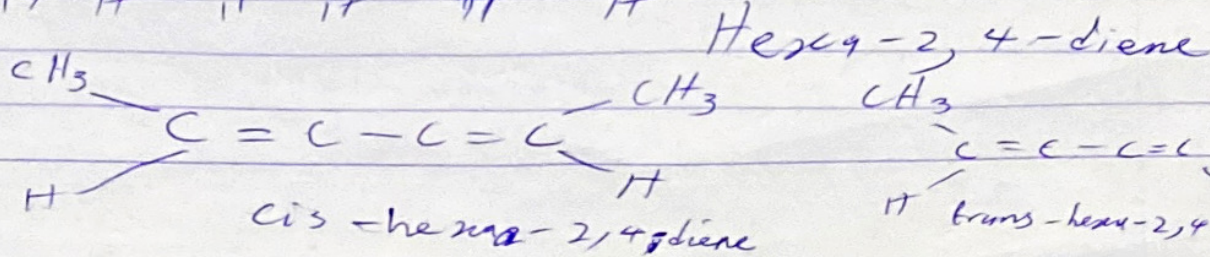 Hexa-2, 4-diene
CH3 CH3 CH3
C = C - C = C C = C - C = C
H H H
cis-hexa-2,4-diene trans-hexa-2,4